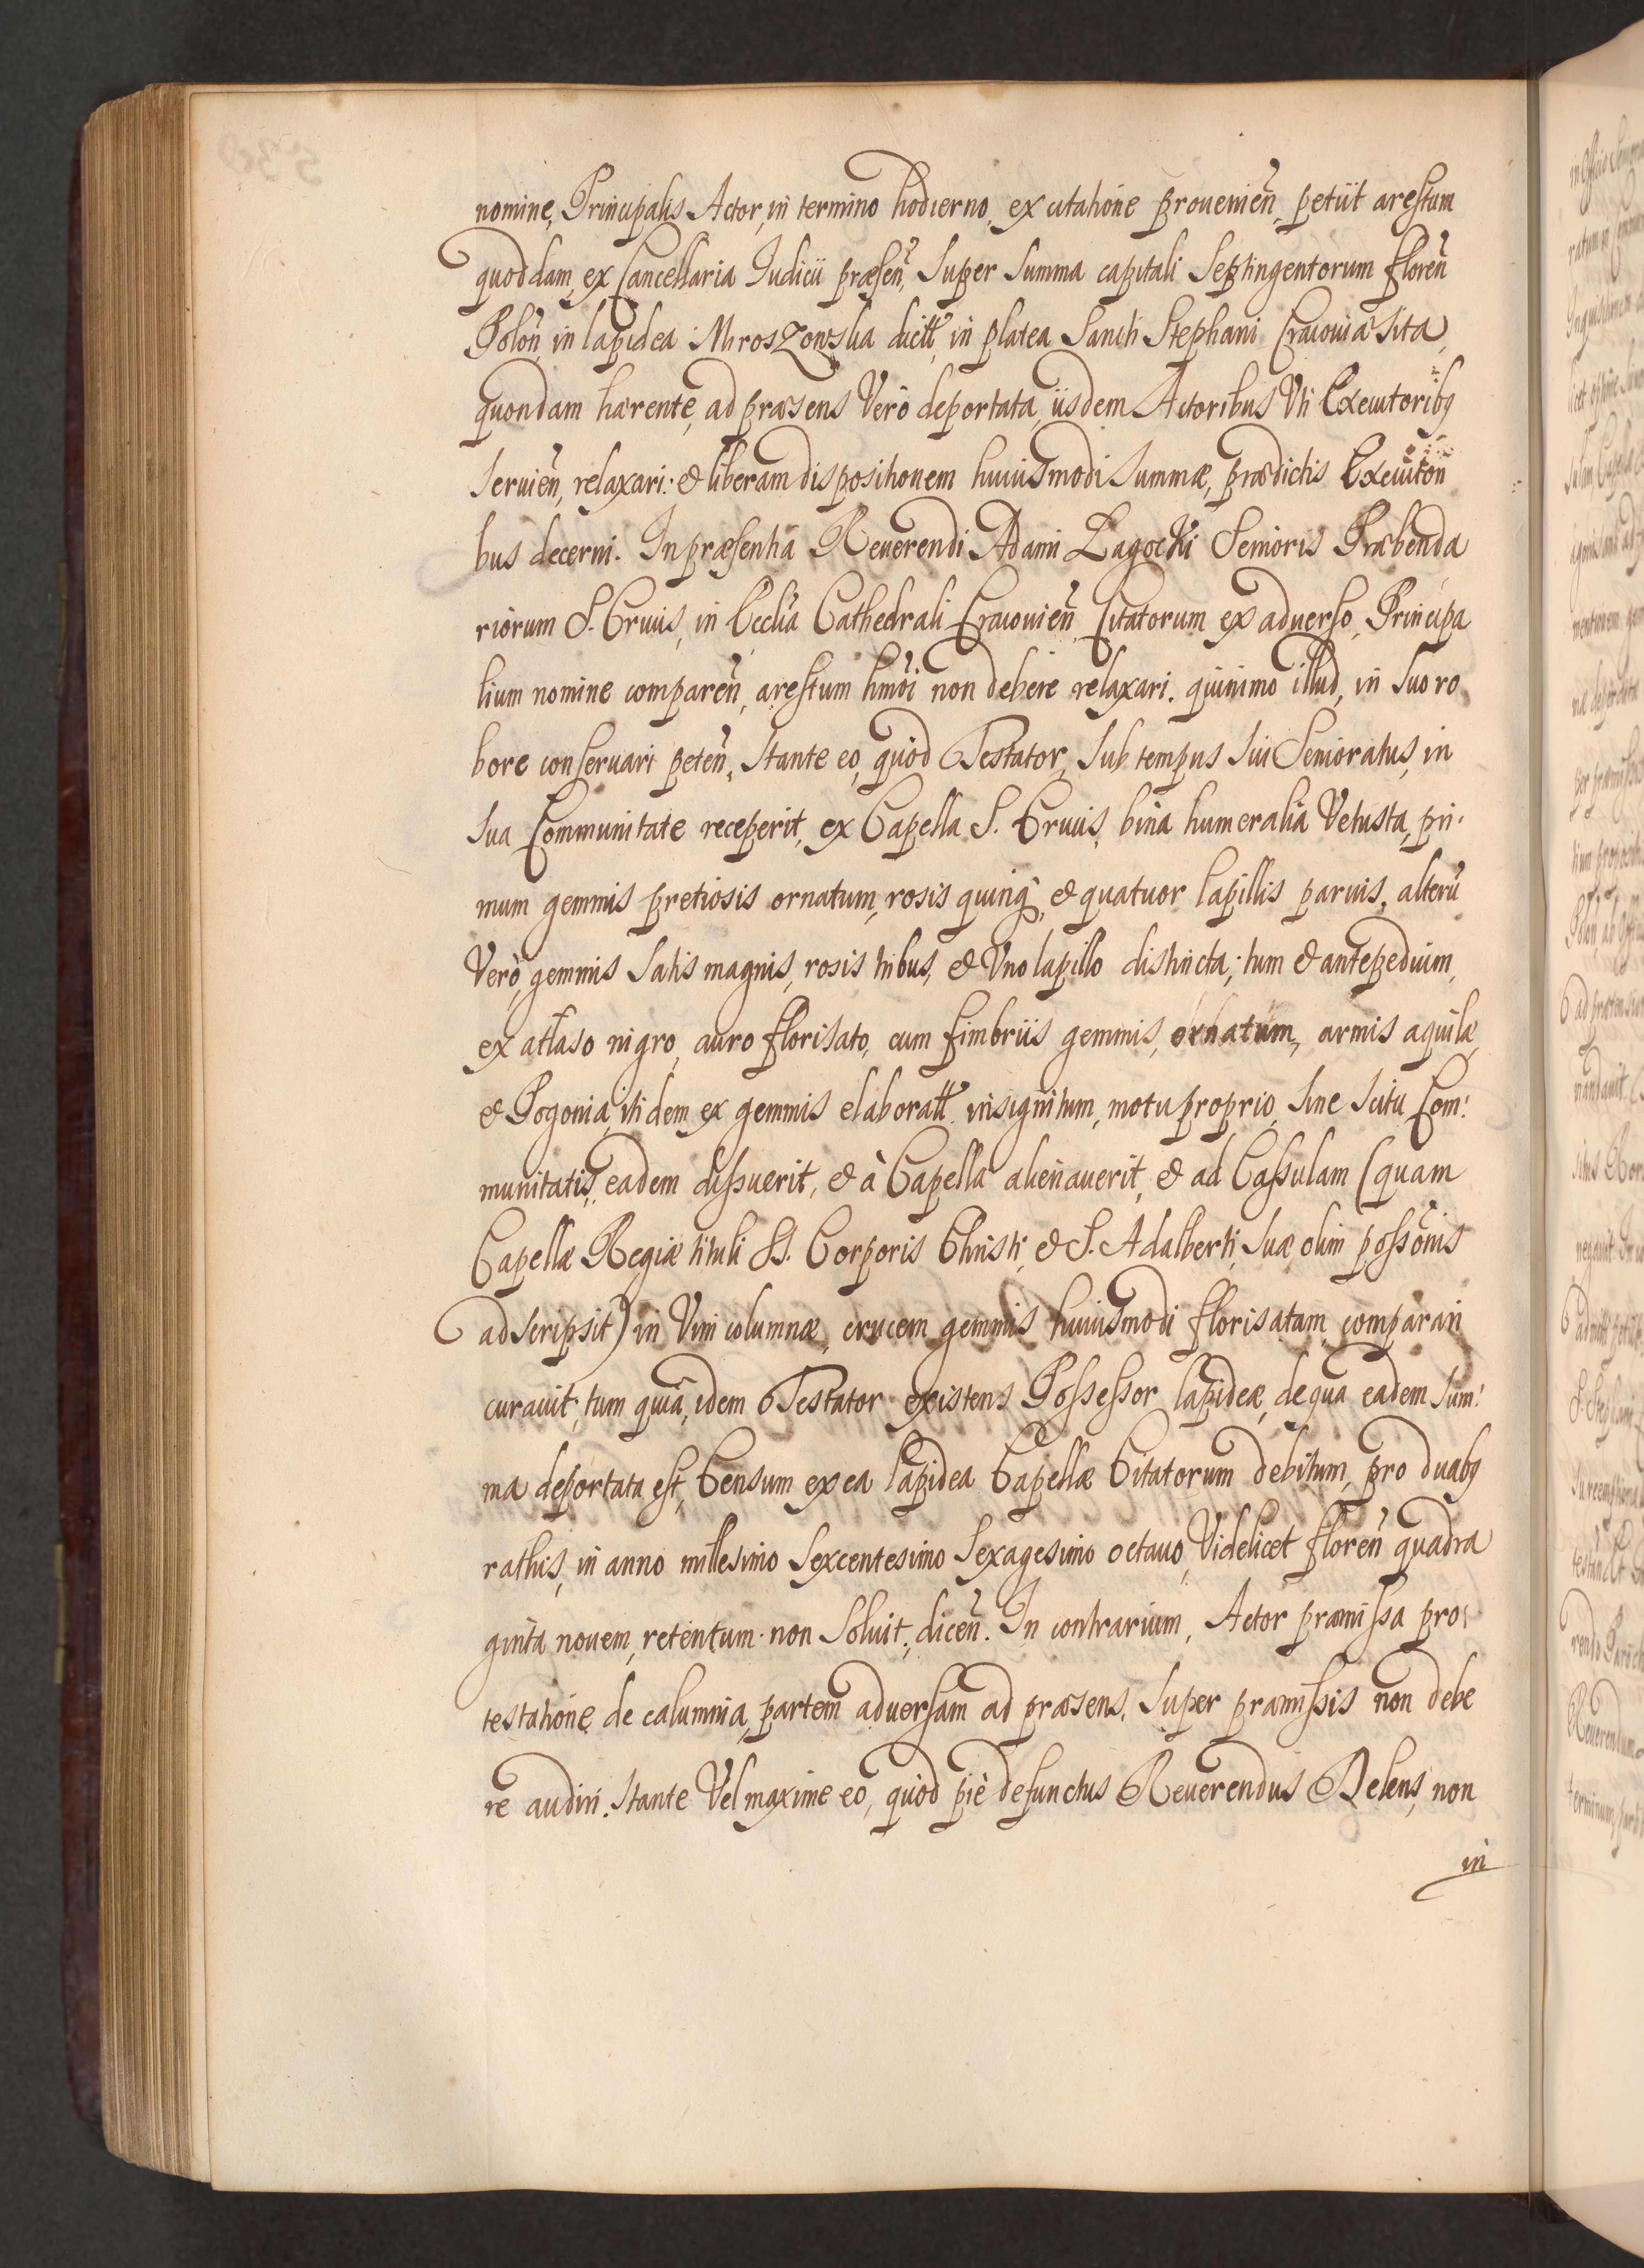 nomine, Principalis Actor, in termino hodierno, ex citatione prouenień, petiit arestum
quoddam, ex Cancellaria Iudicii præseń, super summa capitali Septingentorum floreń
Poloń, in lapidea Mroszowska dictt, in platea Sancti Stephani Cracouiæ sita,
quondam hærente, ad præsens Verò deportata, iisdem Actoribus Vti Executoribꝫ
seruień, relaxari: et liberam dispositionem huiusmodi summæ, prædictis Executori
bus decerni. In præsentia Reuerendi Adami Łagocki Senioris Præbenda
riorum S. Crucis, in Ecclia Cathedrali Cracouień Citatorum ex aduerso, Principa
lium nomine compareń, arestum hmoi non debere relaxari. quinimo illud, in suo ro
bore conseruari peteń, stante eo, quòd Testator, sub tempus sui Senioratus, in
sua Communitate receperit, ex Capella S. Crucis, bina humeralia Vetusta, pri
mum gemmis pretiosis ornatum, rosis quinq, et quatuor lapillis paruis, alterū
Verò, gemmis satis magnis, rosis tribus, et Vno lapillo distincta; tum et antepedium,
ex atłaso nigro, auro florisato, cum fimbriis gemmis, ornatum, armis aquilæ,
et Pogonia, itidem ex gemmis elaboratt insignitum, motu proprio, sine scitu Com:
munitatis, eadem dissuerit, et à Capella alienauerit, et ad Cassulam (quam
Capellæ Regiæ tituli SS. Corporis Christi, et S. Adalberti, suæ olim possonis
adscripsit) in Vim columnæ, crucem gemmis huiusmodi florisatam, comparari
curauit; tum quia, idem Testator existens Possessor lapideæ, de qua eadem sum:
ma deportata est, Censum ex ea lapidea Capellæ Citatorum debitum, pro duabꝫ
rathis, in anno millesimo sexcentesimo sexagesimo octauo, Videlicet floreń quadra
ginta nouem, retentum non soluit, diceń. In contrarium, Actor præmissa pro:
testatione de calumnia, partem aduersam ad præsens, super præmissis non debe
re audiri. stante Vel maxime eo, quòd piè defunctus Reuerendus Belens, non
in